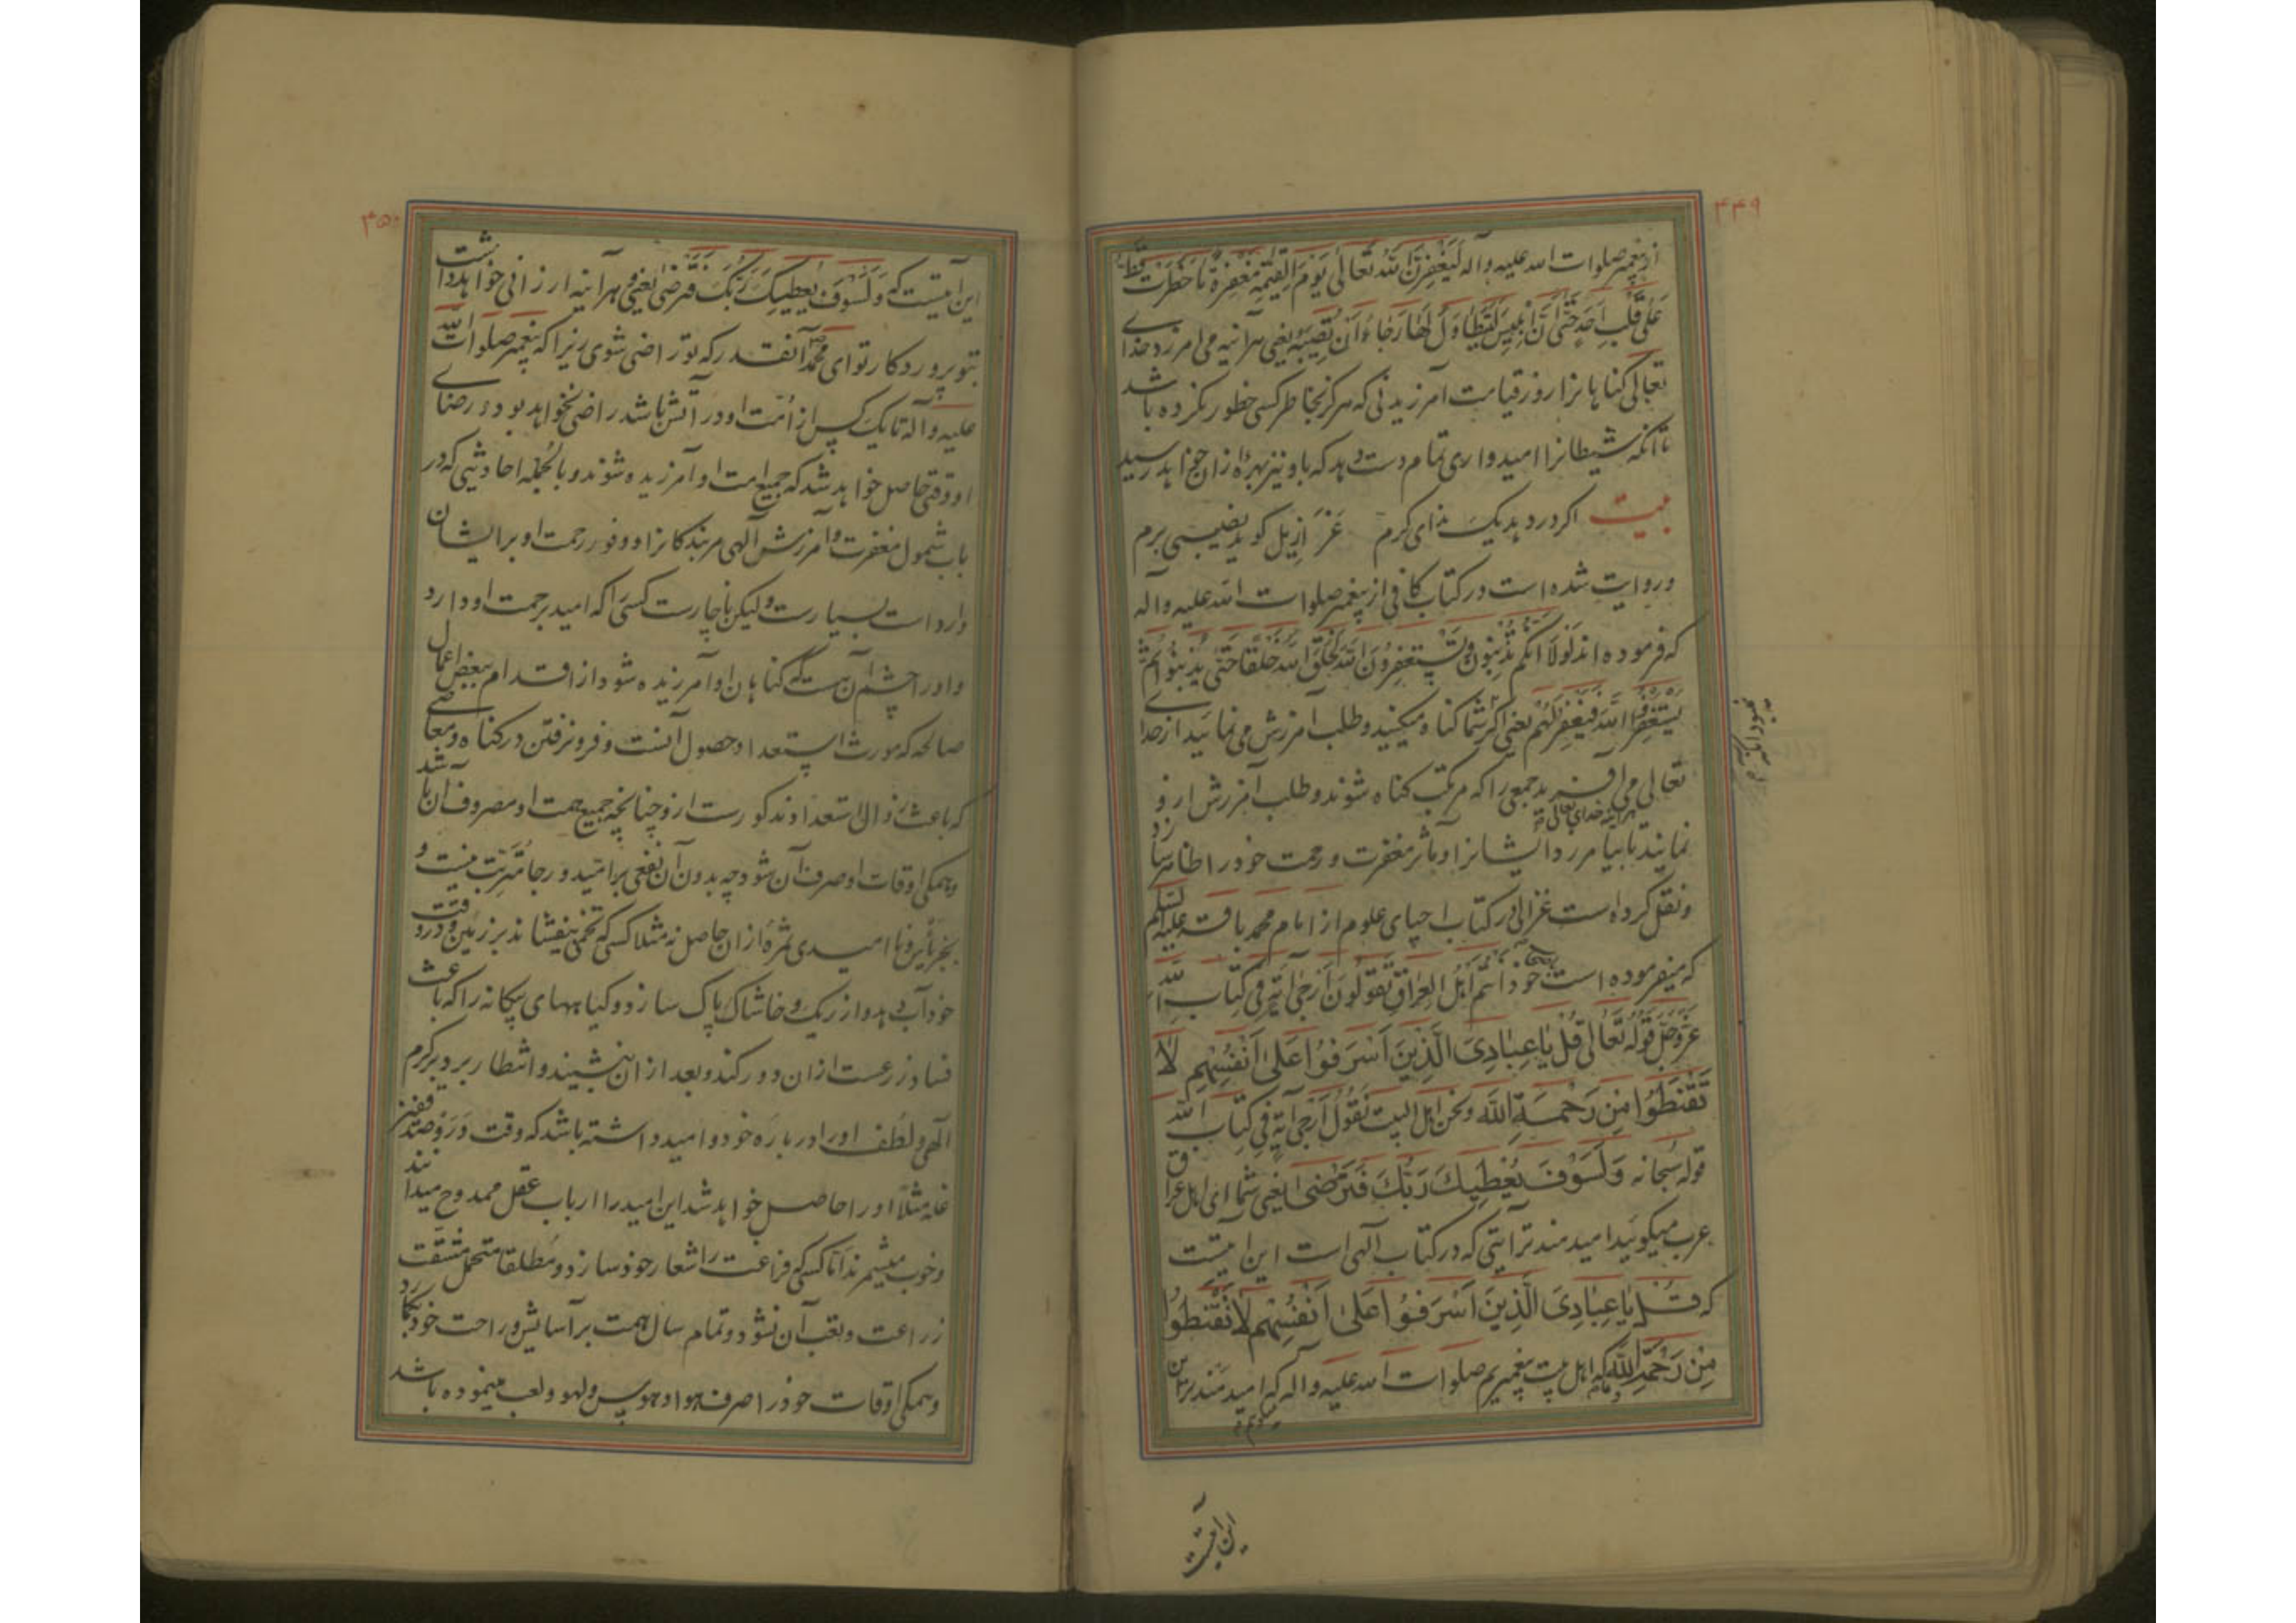 ۴۴۹
از پیغمبر صلوات الله علیه و آله لَیَغْفِرَنَّ اللّه تَعالی یَوْمَ القِیمَةِ مَغْفِرَةً ما خَطَرَتْ قطّ
عَلی قَلْبِ اَحَدٍ حَتّی اَنَّ اِبْلیسَ لَیَتَطاوَلُ لَها رَجاءَ اَنْ تُصیبَهُ یعنی هر آینه می امرزد خدای
تعالی کناهانرا روز قیامت آمرزیدنی که هرکز بخاطر کسی خطور نکرده باشد
تا آنکه شیطانرا امیدواری تمام دست دهد که باو نیز بهرهٔ ازان خواهد رسید
بیت اکر دردهد یک صلای کرم عزازیل کوید نصیبی برم
و روایت شده است در کتاب کافی از پیغمبر صلوات الله علیه و آله
که فرموده اند لَوْلا اَنَّکُمْ تُذْنِبُونَ وَ تَسْتَغْفِرُونَ اللّهَ لَخَلَقَ اللّه خَلْقًا حَتّی یُذْنِبُوا ثُمَّ
یَسْتَغْفِرُوا اللّهَ فَیَغْفِرَ لَهُمْ یعنی اکر شما کناه میکنید و طلب امرزش می نمائید از خدای
تعالی می آفرید جمعی را که مرتکب کناه شوند و طلب آمرزش ازو
هرآینه خدای تعالی
نمایند تا بیامرزد ایشانرا و مآثر مغفرت و رحمت خود را ظاهر سازد
و نقل کرده است غزالی در کتاب احیای علوم از امام محمد باقر علیه السلم
که میفرموده است اَنْتُمْ اَهْلَ العِراقِ تَقُولُونَ اَرْجی آیَةٍ فی کِتابِ اللّه
عَزَّ وَ جَلَّ قَوْلُهُ تَعالی قُلْ یا عِبادِیَ الَّذینَ اَسْرَفُوا عَلی اَنْفُسِهِم لا
تَقْنَطُوا مِن رَحْمَةِ اللَّه و نحن اهل البیت نَقُولُ اَرْجی آیَةٍ فی کِتابِ اللّه
قوله سبحانه وَلَسَوْفَ یُعْطیكَ رَبُّكَ فَتَرْضی یعنی شما ای اهل عراق
عرب میکوئید امیدمندترآیتی که در کتاب آلهی است این آیتست
که قُل یا عِبادِیَ الَّذینَ اَسْرَفُوا عَلی اَنْفُسِهِم لا تَقْنَطُوا
مِن رَحْمَةِ اللَّه و ما که اهل بیت پیغمبریم صلوات الله علیه و آله که امیدمندترین
میکوئیم
این آیتست
۴۵۰
این آیتست که وَ لَسَوْفَ یُعْطیكَ رَبُّكَ فَتَرْضی یعنی هر آینه ارزانی خواهد داشت
بتو پروردکار تو ای محمد آنقدر که تو راضی شوی زیرا که پیغمبر صلوات اللّه
علیه و آله تا یک کس از اُمّت او در آتش باشد راضی نخواهد بود و رضای
او وقتی حاصل خواهد شد که جمیع امت او آمرزیده شوند و بالجمله احادیثی که در
باب شمول مغفرت و آمرزش آلهی مر بندکانرا و وفور رحمت او بر ایشان
وارد است بسیارست ولیکن ناچارست کسی را که امید برحمت او دارد
و او را چشم آن هست که کناهان او آمرزیده شود از اقدام ببعض اعمال
صالحه که مورث استعداد حصول آنست و فرو نرفتن در کناه و معاصی
که باعث زوال استعداد مذکورست ازو چنانچه جمیع همت او مصروف آن باشد
و همکی اوقات او صرف آن شود چه بدون آن نفعی بر امید و رجا مترتب نیست و
بجز یأس و نا امیدی ثمرهٔ ازان حاصل نه مثلا کسی که تخمی بیفشاند بر زمین و در وقت
خود آب دهد و از ریک و خاشاک پاک سازد و کیاههای بیکانه را که باعث
فساد زرعست ازان دور کند و بعد ازان بنشیند و انتظار برد بر کرم
آلهی و لطف او را در بارهٔ خود و امید داشته باشد که وقت درو صد قفیز
غله مثلاً او را حاصل خواهد شد این امید را ارباب عقل ممدوح میدانند
و خوب میشمرند اما کسی که فراغت را شعار خود سازد و مطلقا متحمل مشقت
زراعت و تعب آن نشود و تمام سال همت بر آسایش و راحت خود بکمارد
و همکی اوقات خود را صرف هوا و هوس و لهو و لعب مینموده باشد